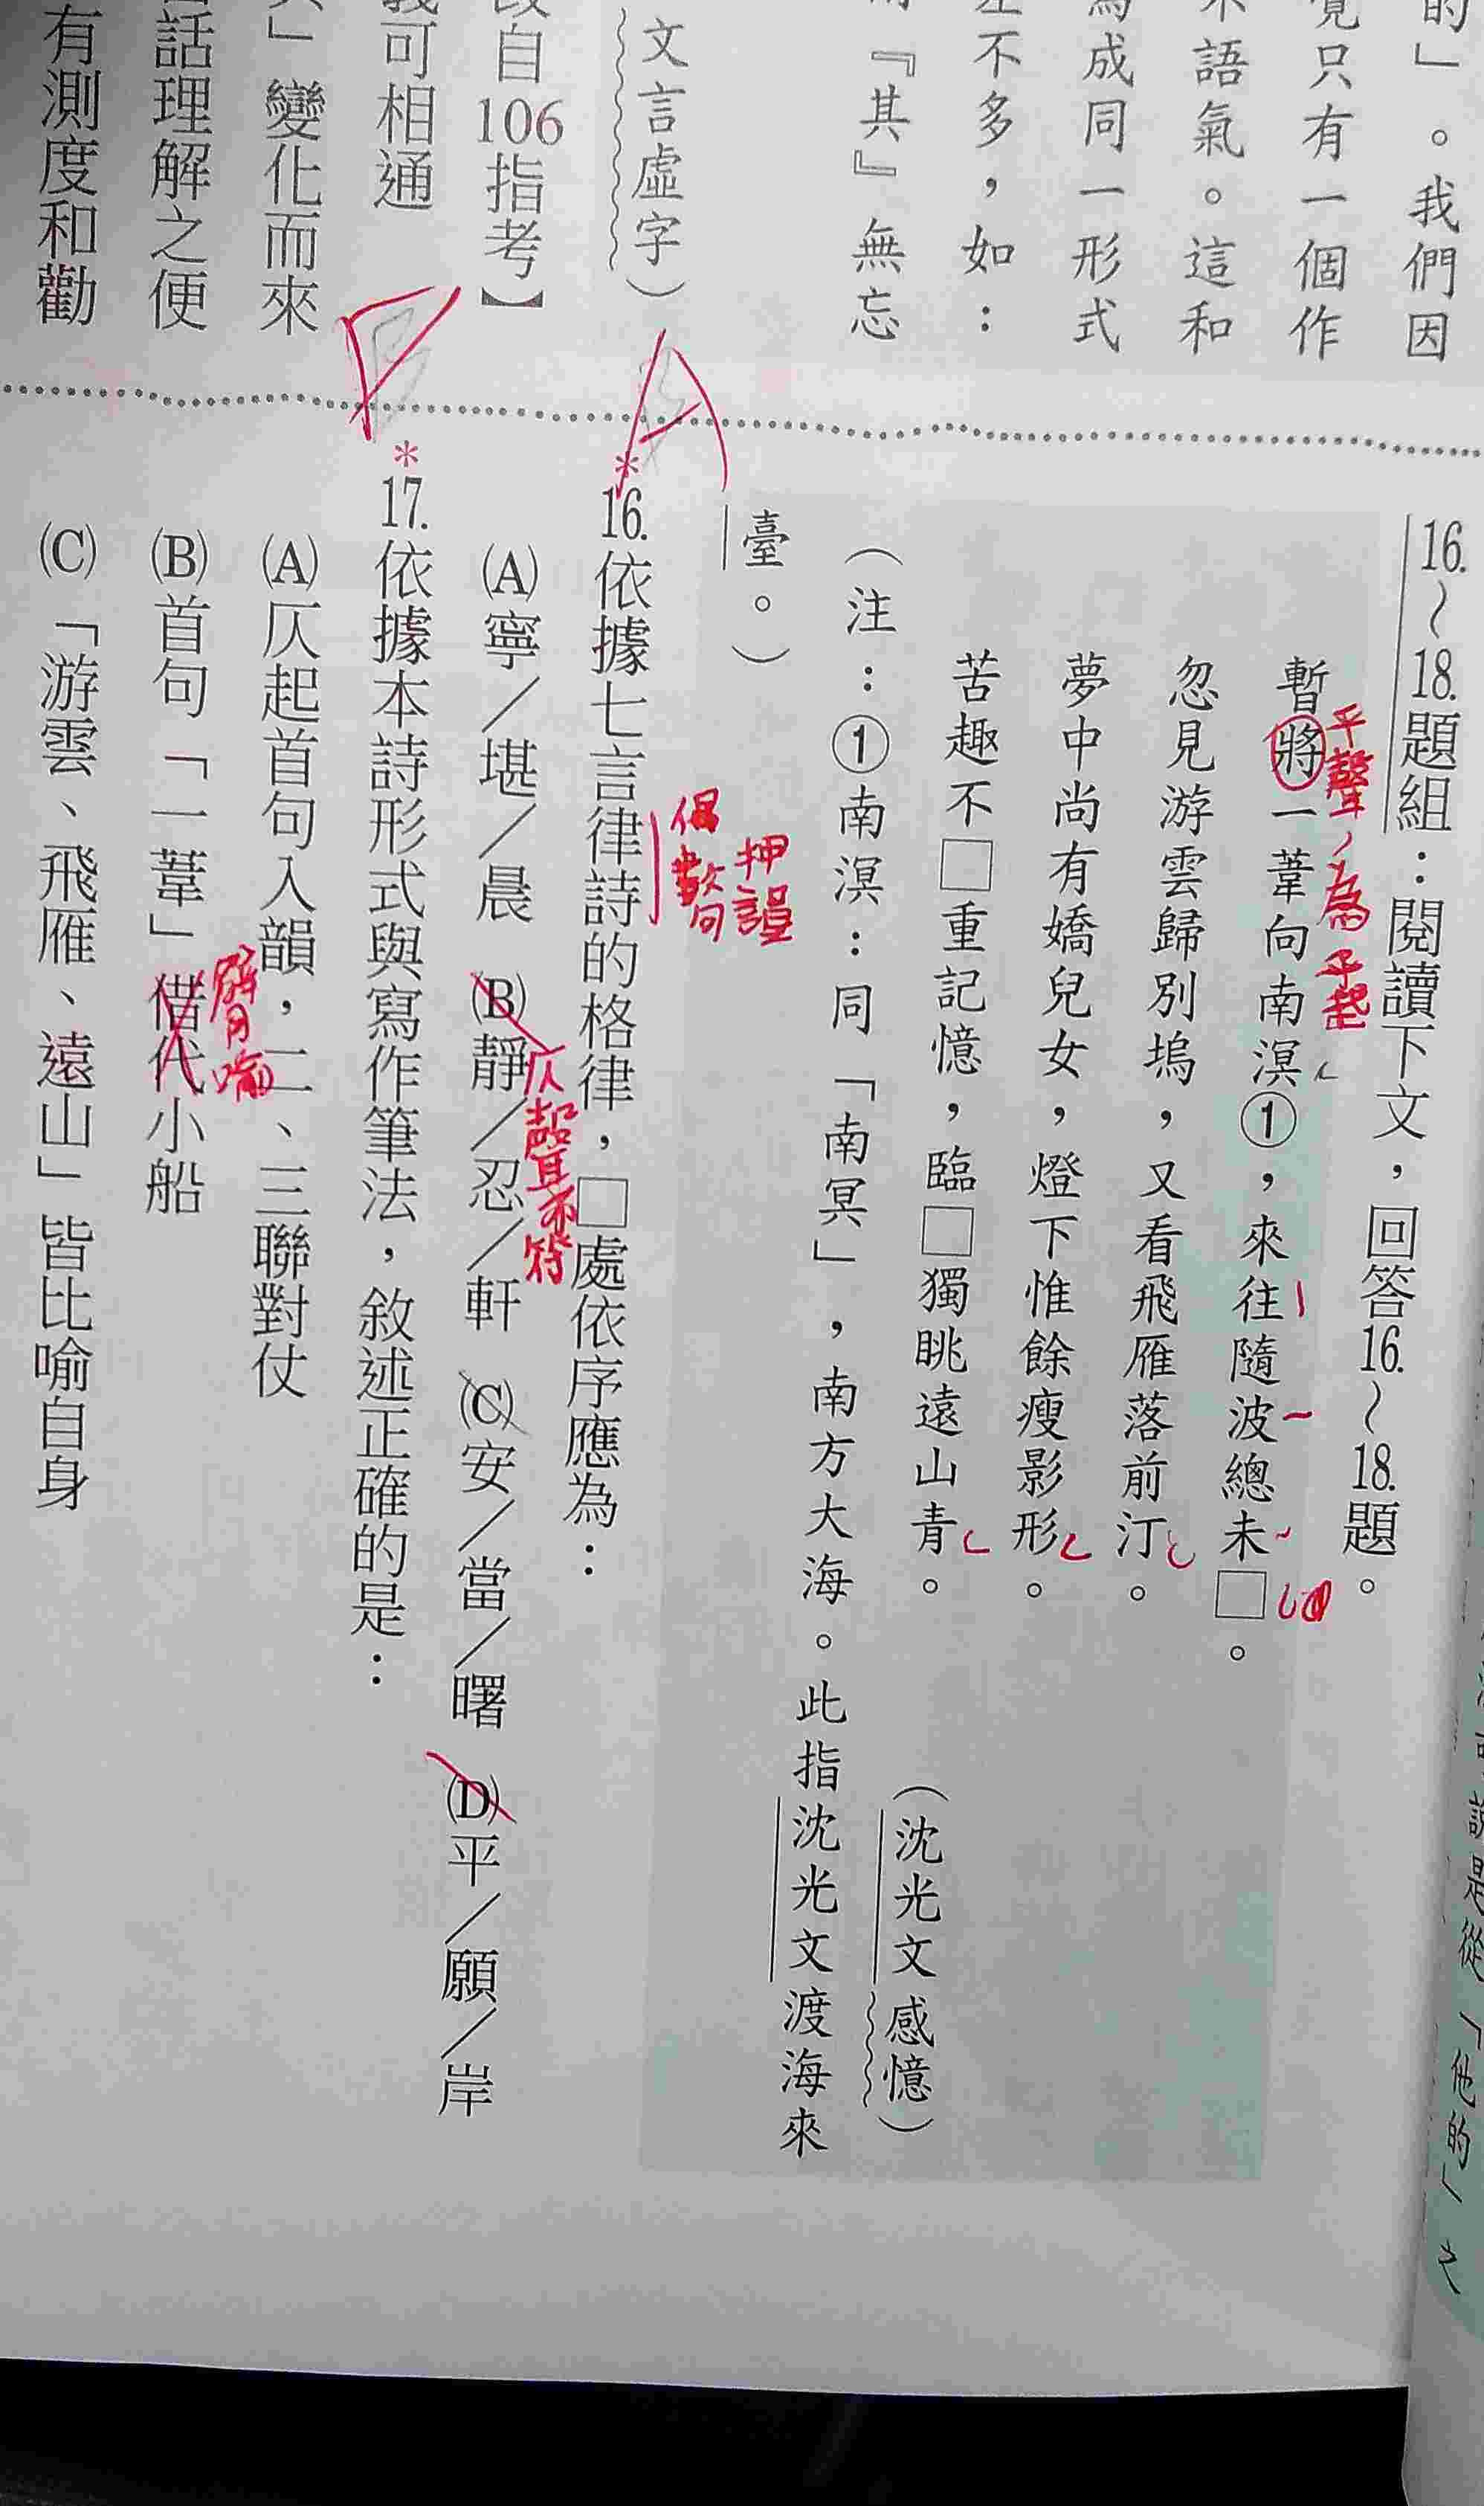 的」。我們因
覺只有一個作
不語氣。這和
為成同一形式
差不多，如：
『其』無忘
文言虛字）
改自106指考】
義可相通
」變化而來
話理解之便
有測度和勸
16.～18.題組：閱讀下文，回答16.～18.題。
暫將一葦向南溟①，來往隨波總未□。
平聲，為平起
忽見游雲歸別塢，又看飛雁落前汀。
夢中尚有嬌兒女，燈下惟餘瘦影形。
苦趣不□重記憶，臨□獨眺遠山青。
（沈光文感憶）
（注：①南溟：同「南冥」，南方大海。此指沈光文渡海來
臺。）
A
押韻
偶數句
*16.依據七言律詩的格律，□處依序應為：
(A)寧／堪／晨 (B)靜／忍／軒 (C)安／當／曙 (D)平／願／岸
仄聲不符
*17.依據本詩形式與寫作筆法，敘述正確的是：
(A)仄起首句入韻，二、三聯對仗
(B)首句「一葦」借代小船
(C)「游雲、飛雁、遠山」皆比喻自身
是從「他的